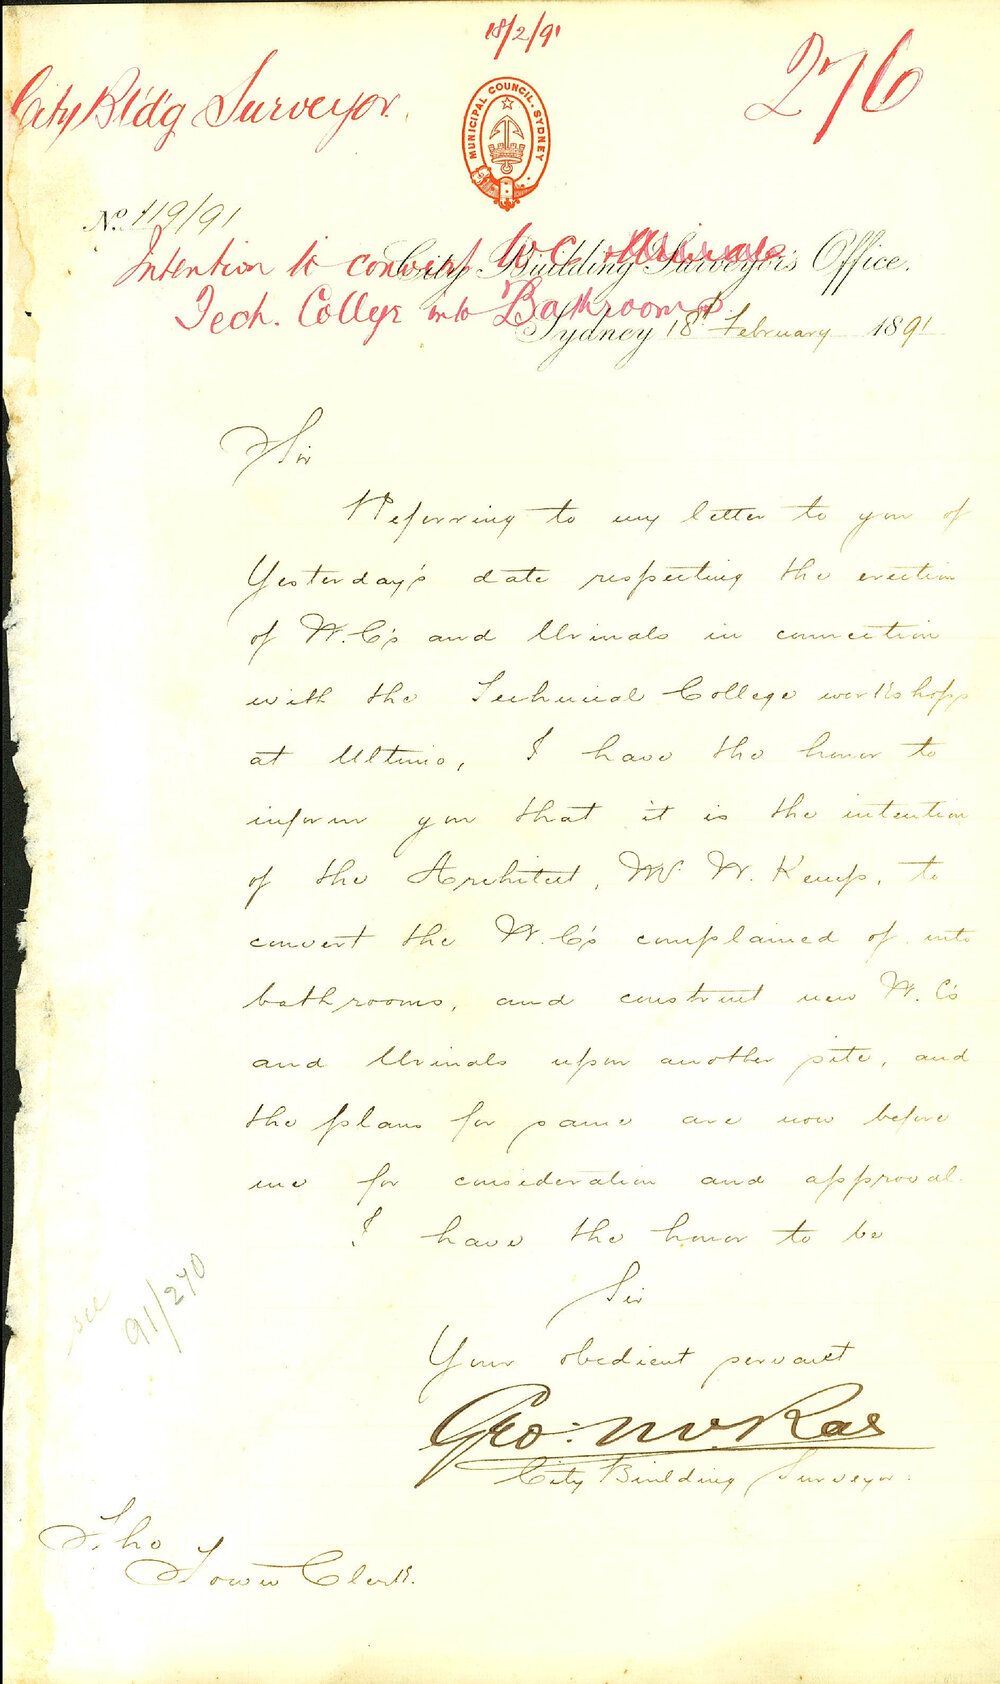 18/2/91
276
City Bldg Surveyor.
MUNICIPAL COUNCIL · SYDNEY
No. 119/91
Intention to convert W.C. & Urinals
Tech. College into Bathrooms
City Building Surveyor's Office.
Sydney 18th February 1891
Sir
Referring to my letter to you of
Yesterday's date respecting the erection
of W.C's and Urinals in connection
with the Technical College workshops
at Ultimo, I have the honor to
inform you that it is the intention
of the Architect, Mr. W. Kemp, to
convert the W.C's complained of into
bathrooms, and construct new W.C's
and Urinals upon another site, and
the plans for same are now before
me for consideration and approval.
I have the honor to be
Sir
Your obedient servant
Geo: McRae
City Building Surveyor.
see
91/270
The
Town Clerk.